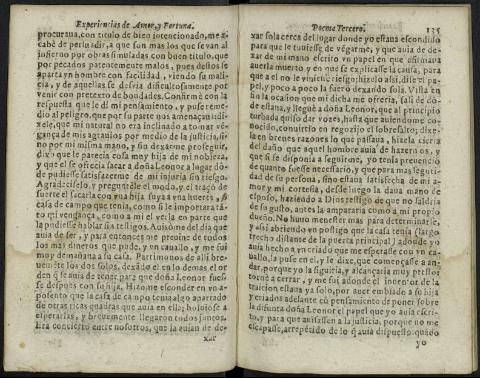 Experiencias de Amor, y Fortuna.
procuraua, con titulo de bien intencionado, me a-
cabè de persuadir, a que son mas los que se van al
infierno por obras simuladas con buen titulo, que
por pecados patentemente malos, pues destos se
aparta vn hombre con facilidad, viendo su mali-
cia, y de aquellas se desvia dificultosamente por
venir con pretexto de bondades. Confirmè con la
respuesta que le dì mi pensamiento, y puse reme-
dio al peligro, que por su parte nos amenaçaua: di-
xele, que mi natural no era inclinado a tomar vẽ-
gança de mis agrauios por medio de la justicia, si-
no por mi misma mano, y sin dexarme proseguir,
dixo que le parecia cosa muy hija de mi nobleza,
y que el se ofrecia sacar a doña Leonor a lugar dõ-
de pudiesse satisfazerme de mi injuria sin riesgo.
Agradecìselo, y preguntèle el modo, y el traçò de
suerte el sacarla con vna hija suya a vna huerta, y
casa de campo que tenia, como si le importara tã-
to mi vengança, como a mi el verla en parte que
la pudiesse hablar sin testigos. Auisòme del dia que
auia de ser, y para entonces me preuine de todos
los mas dineros que pude, y vn cauallo, y me fui
muy de mañana a su casa. Partimonos de alli bre-
uemente los dos solos, dexãdo el en lo demas el or-
den q̃ se auia de tener para que doña Leonor fues-
se despues con su hija. Hizome esconder en vn a-
posento que la casa de cãpo tenia algo apartado
de otras pieças quadras que auia en ella; boluiose a
esperarlas, y breuemente llegaron todos juntos.
Era concierto entre nosotros, que la auian de de-
xar
Poema Tercero. 135
xar sola cerca del lugar donde yo estaua escondido
para que le tuuiesse de vėgarme, y que auia de de-
xar de mi mano escrito vn papel en que afirmaua
auerla muerto, y en que se explicasse la causa, para
que a el no le viniesse riesgo: hizelo assi, dile el pa-
pel, y poco a poco la fuerõ dexando sola. Vista en
fin la ocasion que mi dicha me ofrecia, salì de dõ-
de estaua, y lleguè a doña Leonor, que al principio
turbada quiso dar vozes, hasta que auiendome co-
nocido, conuirtiò en regozijo el sobresalto; dixe-
la en breues razones lo que passaua, hizela cierta
del daño que aquel hombre auia de hazernos, y
que si se disponia a seguirme, yo tenia preuencion
de quanto fuesse necessario, y que para mas seguri-
dad de su persona, sino estaua satisfecha de mi a-
mor y mi cortesia, desde luego la daua mano de
esposo, haziendo a Dios testigo de que no saldria
de su gusto, antes la ampararia como a mi propio
dueño. No huuo menester mas para determinarse,
y assi abriendo vn postigo que la casa tenia (largo
trecho distante de la puerta principal) adonde yo
auia hecho a vn criado que me esperasse con vn ca-
uallo, la puse en el, y le dixe, que començasse a an-
dar, porque yo la siguiria, y alcançaria muy presto:
tornè a cerrar, y me fui adonde el inuentor de la
traicion estaua ya solo, por auer embiado a su hija
y criados adelante cõ pensamiento de poner sobre
la difunta doña Leonor el papel que yo auia escri-
to, y para que auisassen a la justicia, porque no me
escapasse, arrepẽtido de lo q̃ auia dispuesto: quãdo
yo